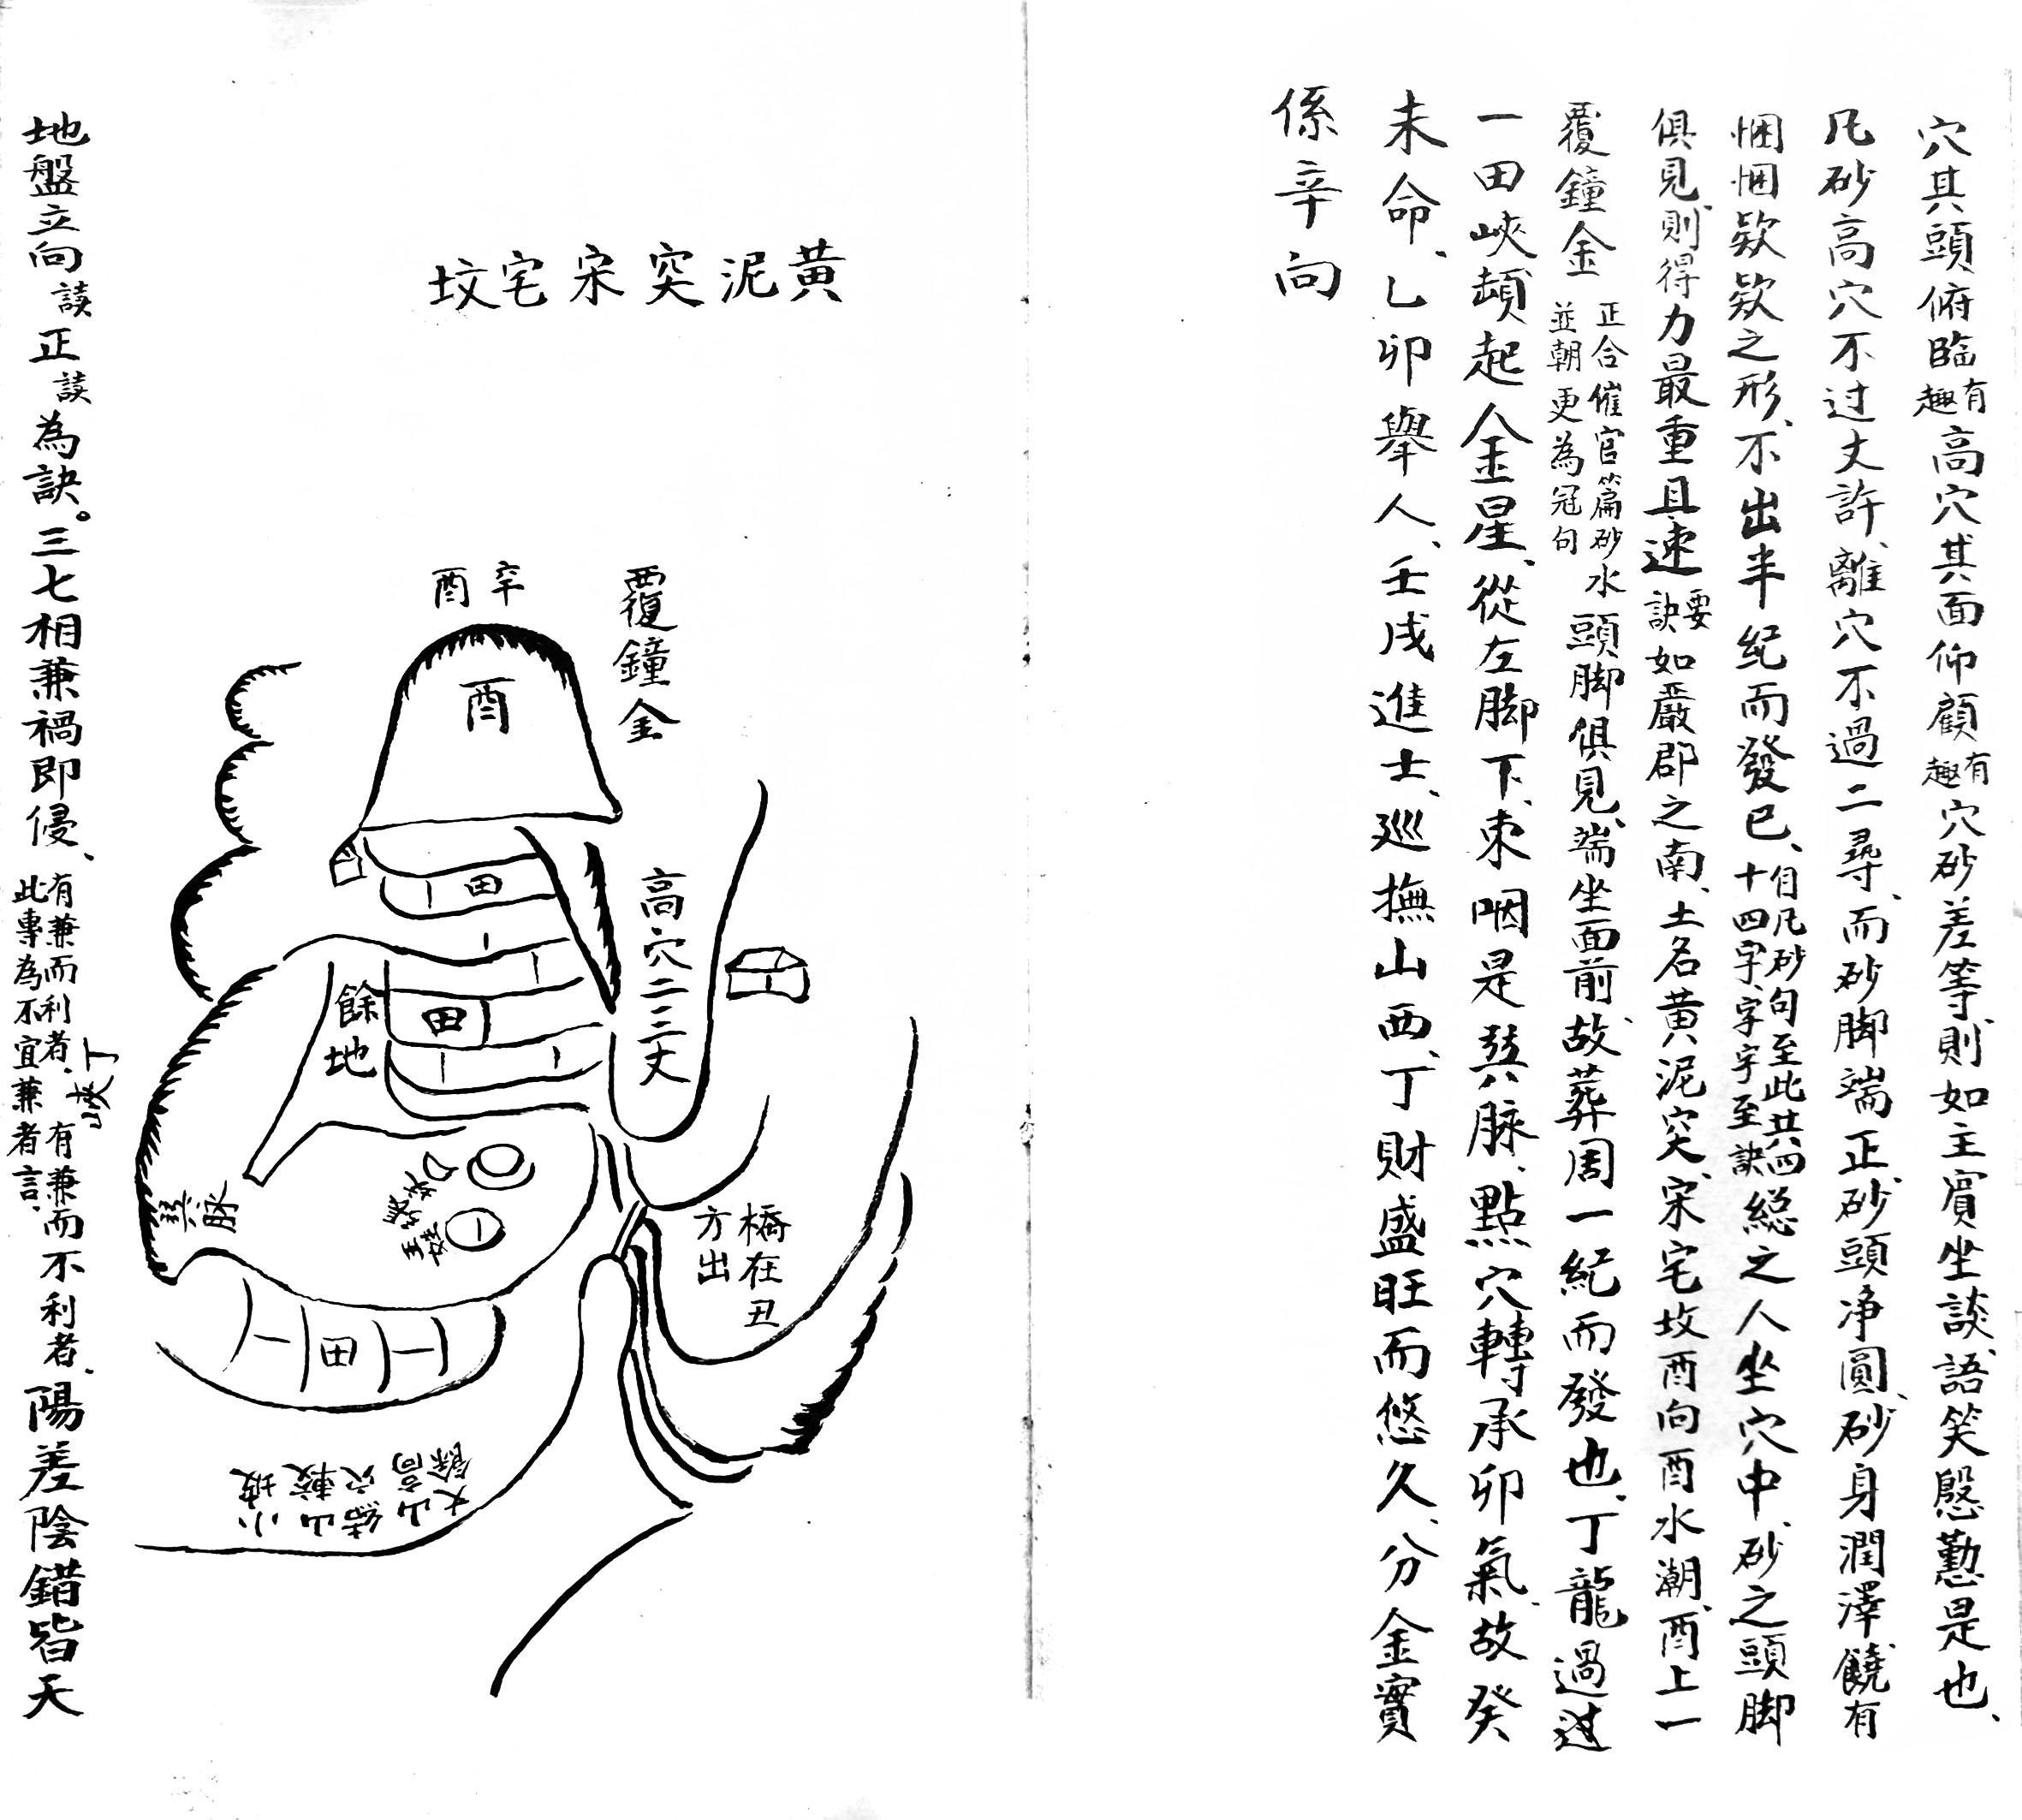 穴其頭俯臨有趣高穴其面仰顧有趣穴砂差等、則如主賓坐談、語笑慇懃是也、
凡砂高穴不过丈許、離穴不過二尋、而砂脚端正、砂頭净圓、砂身潤澤、饒有
悃悃欵欵之形、不出半紀而發已、自凡砂句至此共四十四字、字字至訣総之人坐穴中、砂之頭脚
俱見、則得力最重且速要訣如嚴郡之南、土名黄泥突、宋宅坟酉向酉水潮、酉上一
覆鐘金正合催官篇砂水並朝更為冠句頭脚俱見、端坐面前、故葬周一紀而發也、丁龍過过
一田峽、頓起金星、從左脚下、束咽是巽脉、點穴轉承卯氣、故癸
未命、乙卯舉人、壬戌進士、巡撫山西、丁財盛旺而悠久、分金實
係辛向
黄泥突宋宅坟
覆鐘金
辛
酉
酉
田
高穴二三丈
餘地
田
巽脉
橋在丑
方出
田
地盤立向讀正讀為訣。三七相兼禍即侵、有兼而利者、有兼而不利者、此專為不宜兼者言、陽差陰錯皆天
丁峽